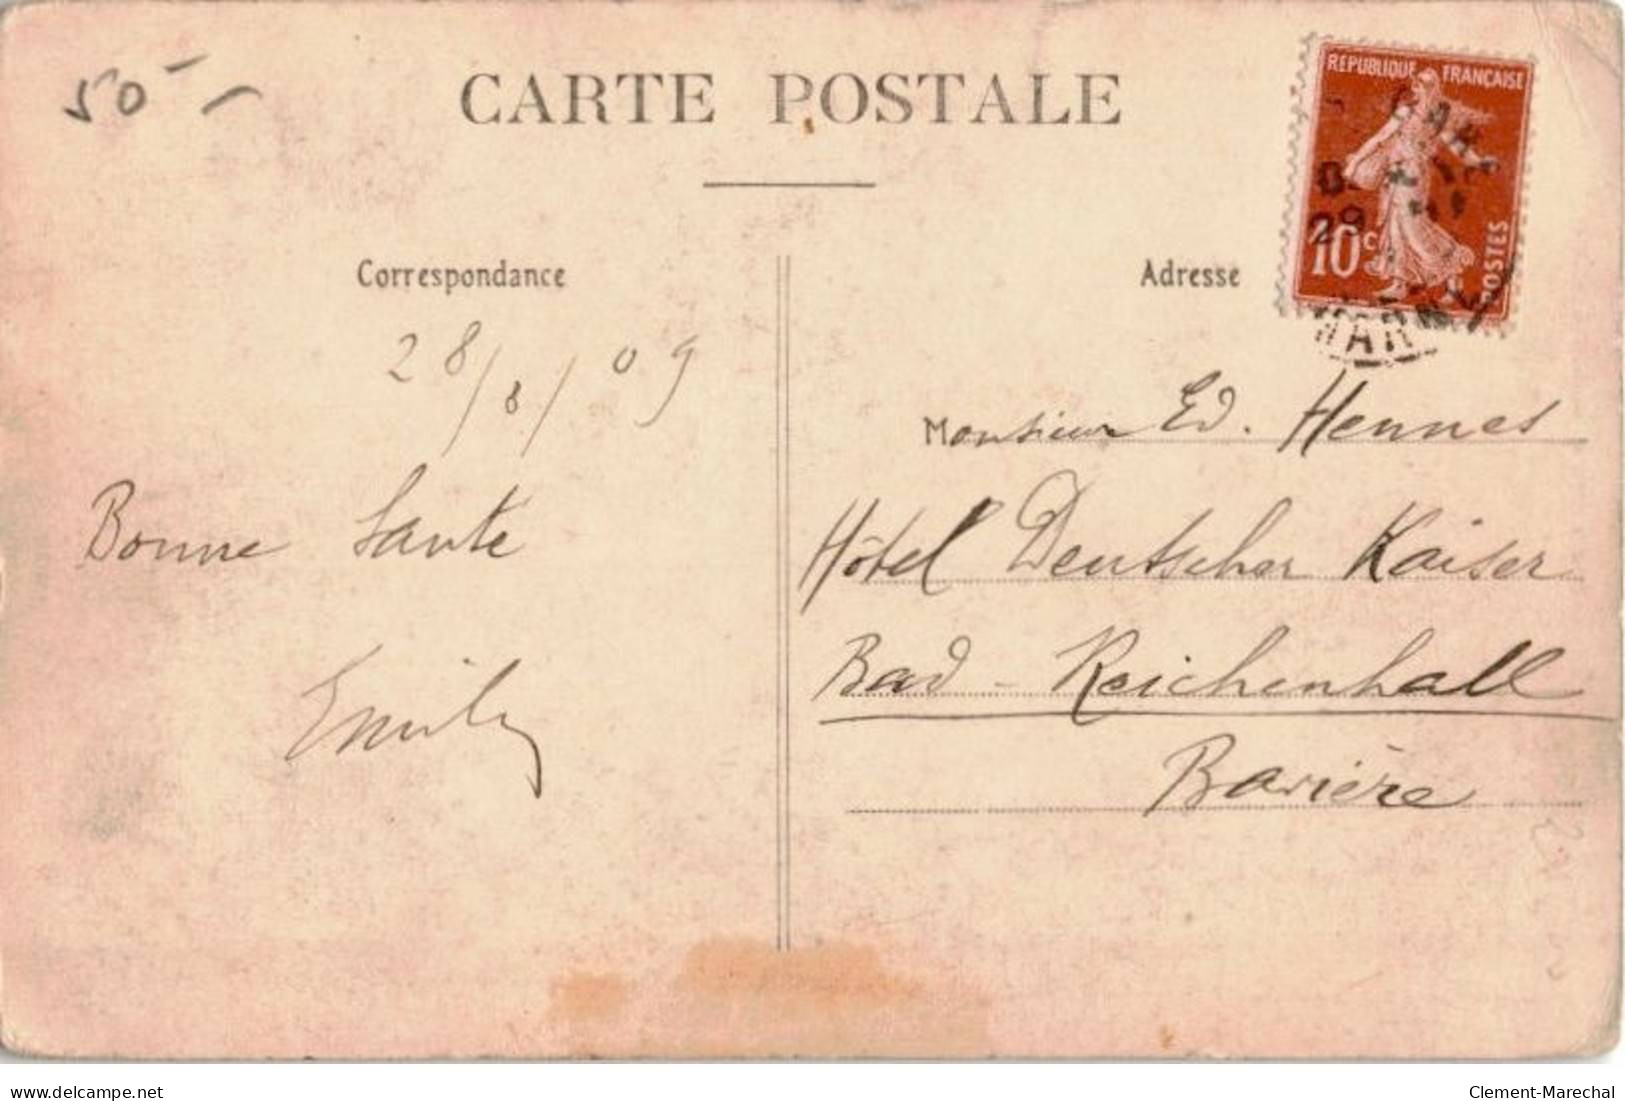 50-
CARTE POSTALE
RÉPUBLIQUE FRANÇAISE
10c
POSTES
GARE
29
MARN
Correspondance
28/8/09
Bonne Santé
Emily
Adresse
Monsieur Ed. Hennes
Hôtel Deutscher Kaiser
Bad-Reichenhall
Bavière
delcampe.net
Clement-Marechal